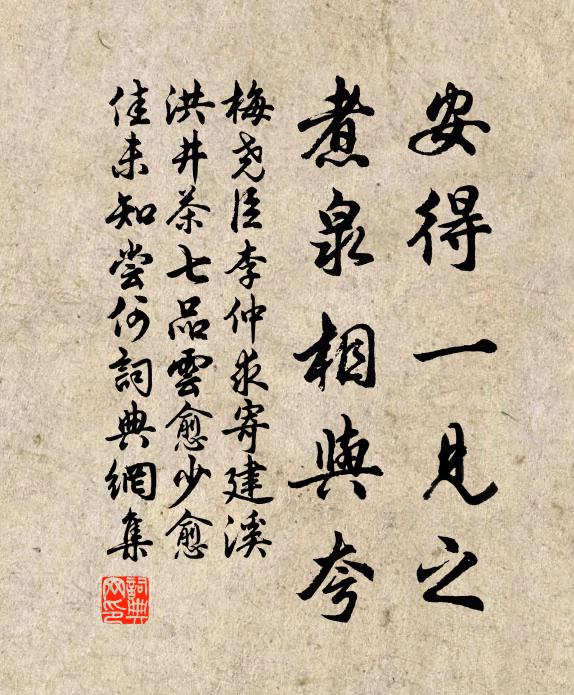 安得一見之
煮泉相與夸
梅尧臣李仲求寄建溪
洪井茶七品雲愈少愈
佳未知尝何詞典網集